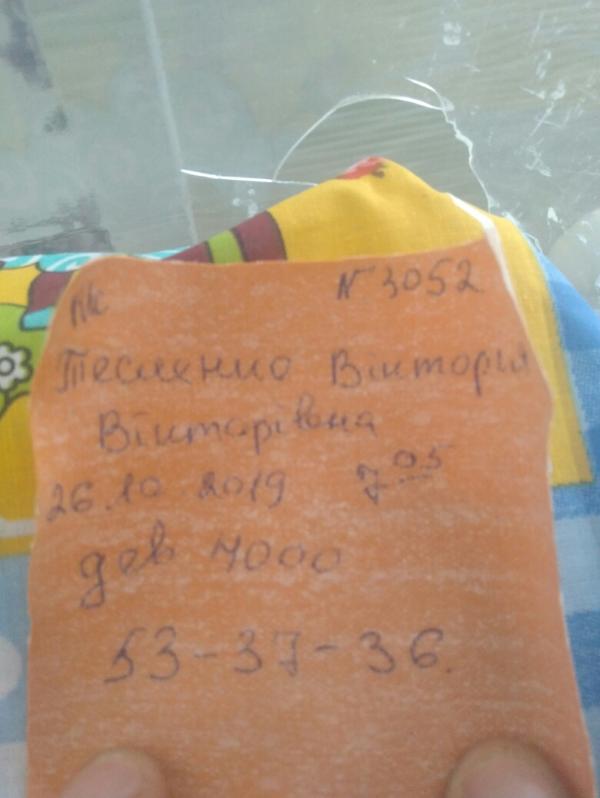 N 3052
Тесленко Вікторія
Вікторівна
26.10.2019 7 05
дев 4000
53-37-36.